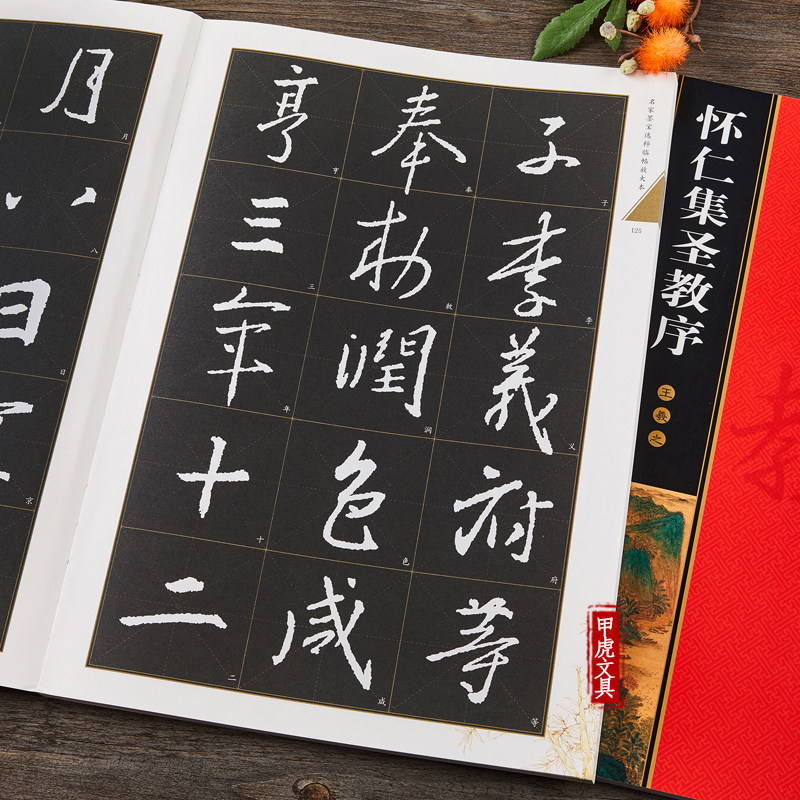 名家墨宝选粹临帖放大本
125
子李義府等
子李义府等
奉勅潤色咸
奉敕润色成
亨三年十二
亨三年十二
月八日京
月八日京
怀仁集圣教序
王羲之
教
甲虎文具